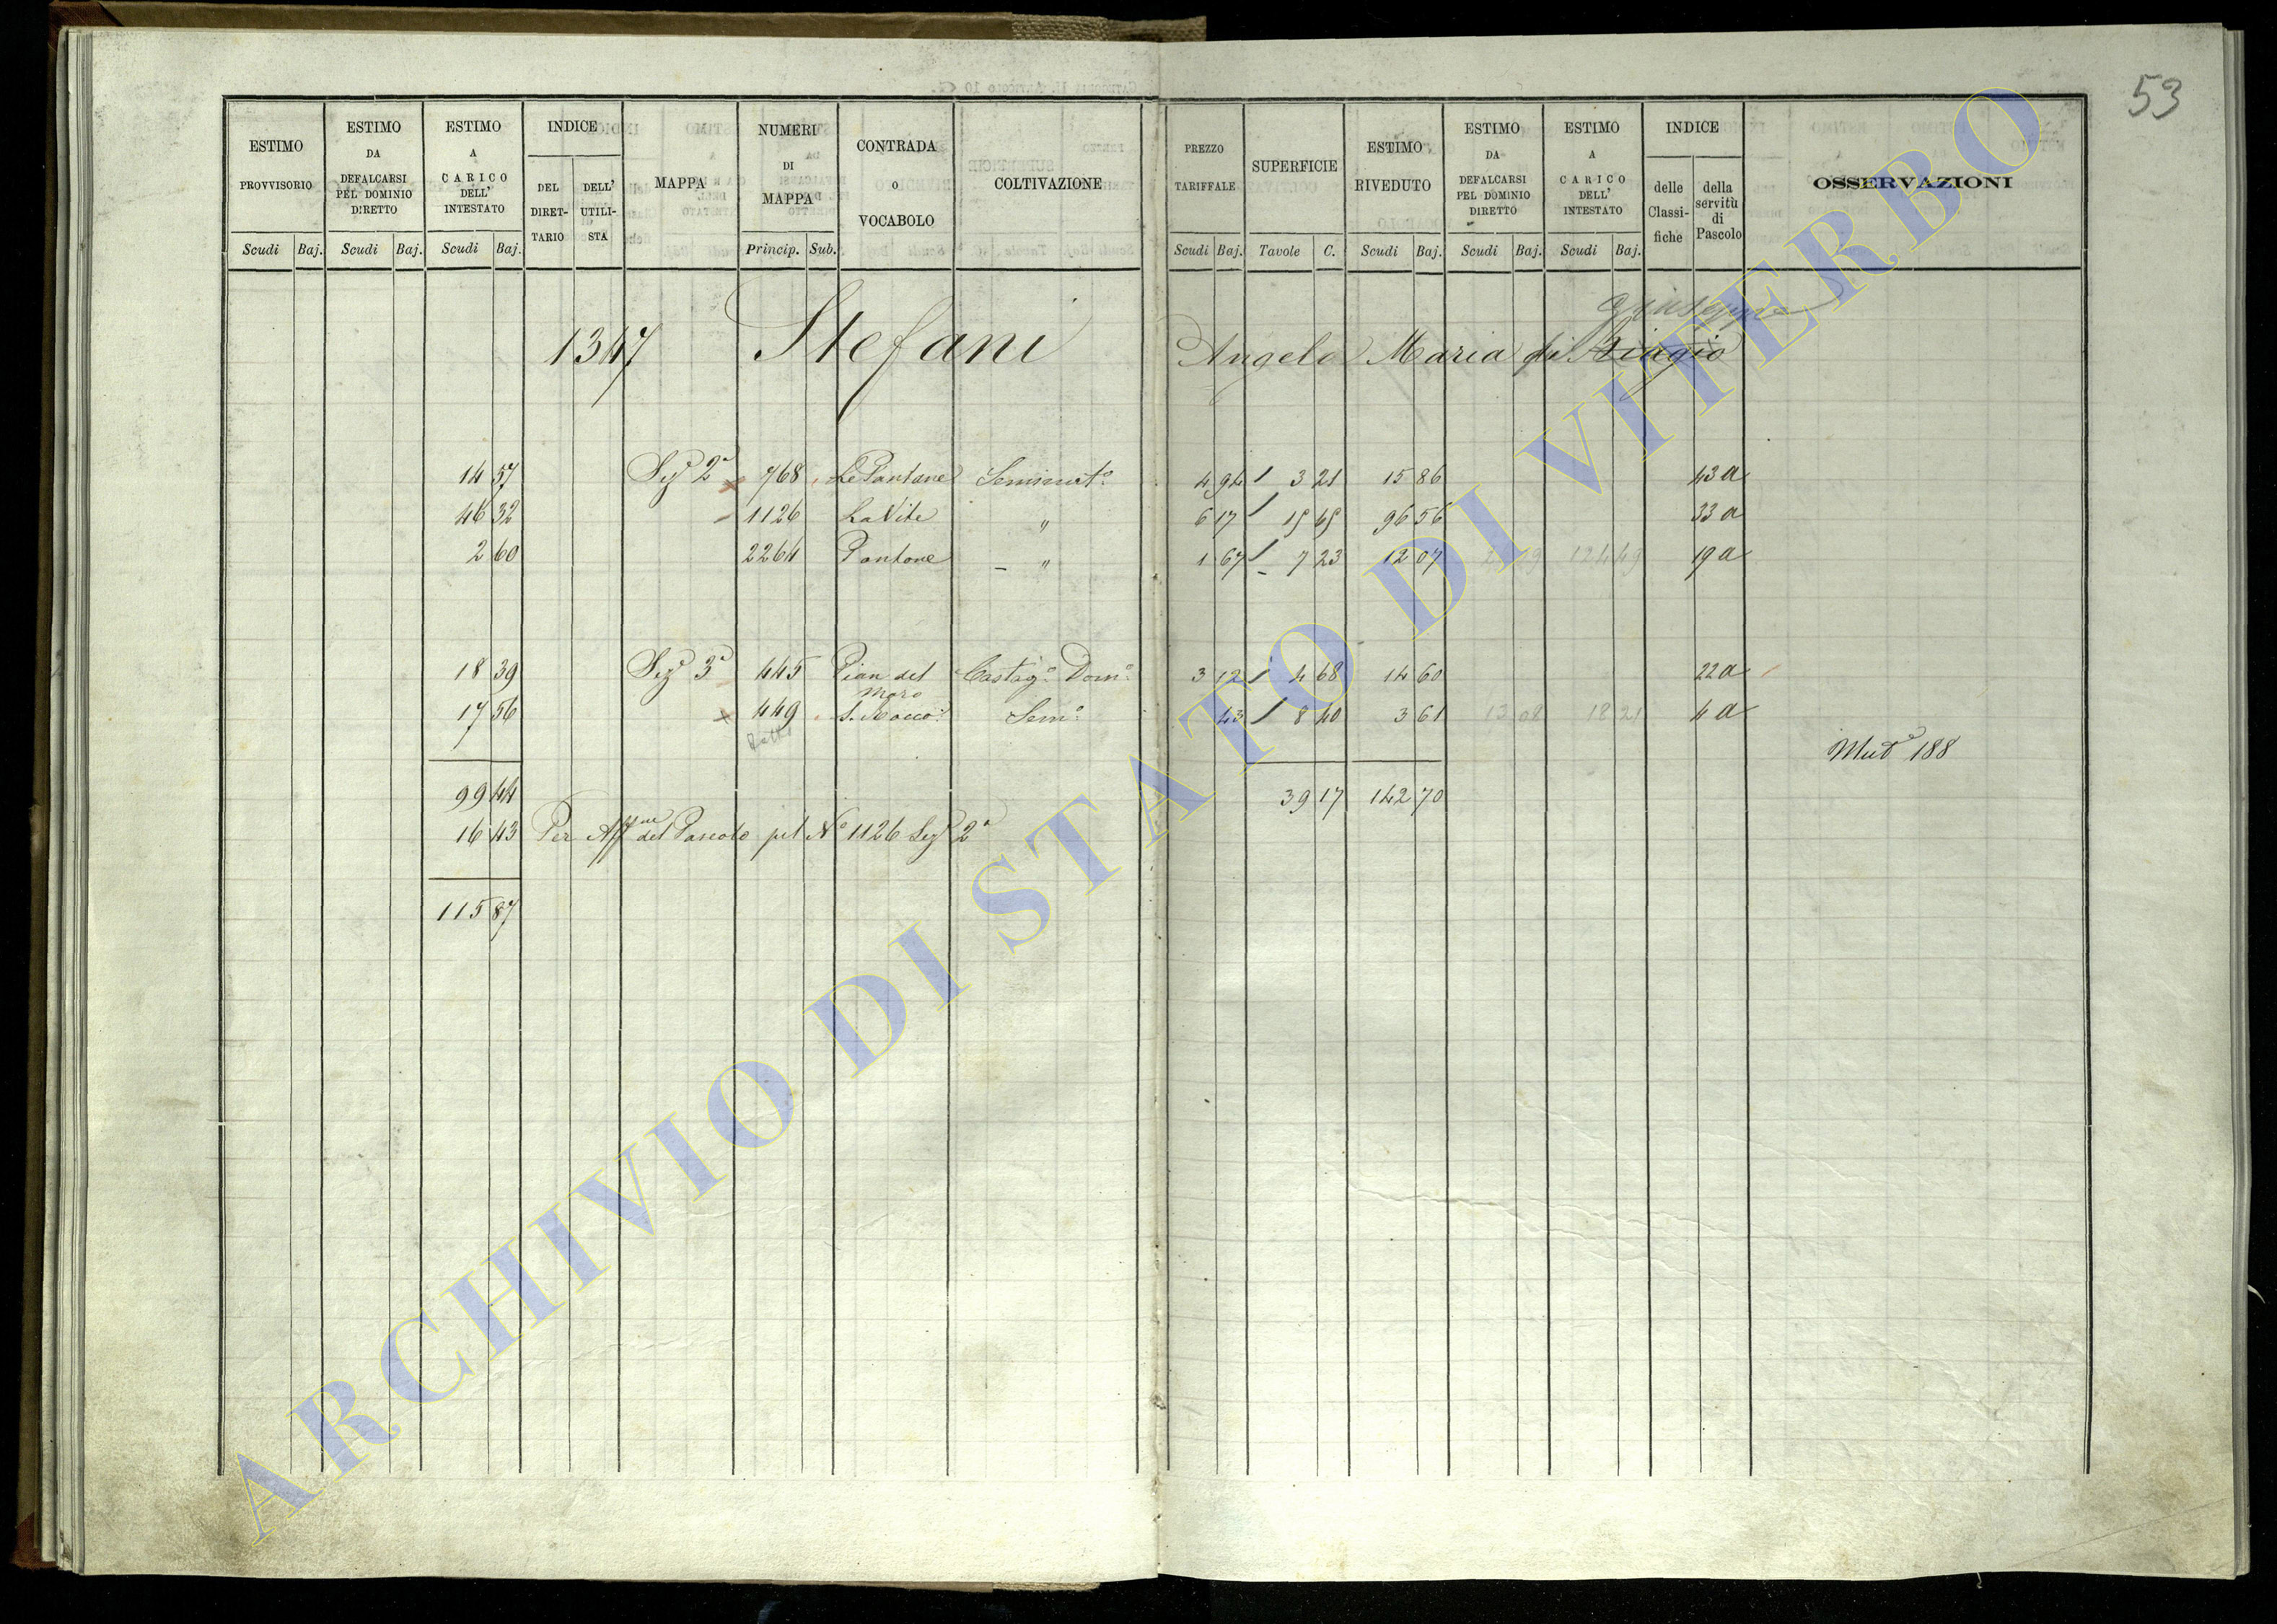 53
ESTIMO PROVVISORIO Scudi Baj.
ESTIMO DA DEFALCARSI PEL DOMINIO DIRETTO Scudi Baj.
ESTIMO A CARICO DELL' INTESTATO Scudi Baj.
INDICE DEL DIRET-TARIO DELL' UTILI-STA
MAPPA
NUMERI DI MAPPA Princip. Sub.
CONTRADA O VOCABOLO
COLTIVAZIONE
PREZZO TARIFFALE Scudi Baj.
SUPERFICIE Tavole C.
ESTIMO RIVEDUTO Scudi Baj.
ESTIMO DA DEFALCARSI PEL DOMINIO DIRETTO Scudi Baj.
ESTIMO A CARICO DELL' INTESTATO Scudi Baj.
INDICE delle Classi-fiche della servitù di Pascolo
OSSERVAZIONI
Giuseppe
1347 Stefani Angelo Maria di Biagio
14 57 Sez.e 2a 768 Le Pantane Seminat.o 4 94 3 21 15 86 43 a
46 32 1126 La Vite " 6 17 15 65 96 56 33 a
2 60 2264 Pantone " 1 67 7 23 12 07 124 49 19 a
18 39 Sez.e 3a 445 Pian del Moro Castag.o Dom.o 3 12 4 68 14 60 22 a
17 56 449 S. Rocco Sem.o 43 8 40 3 61 13 08 18 21 4 a
Mut.e 188
99 44 39 17 142 70
16 43 Per Aff.ne del Pascolo pel N.o 1126 Sez.e 2a
115 87
ARCHIVIO DI STATO DI VITERBO